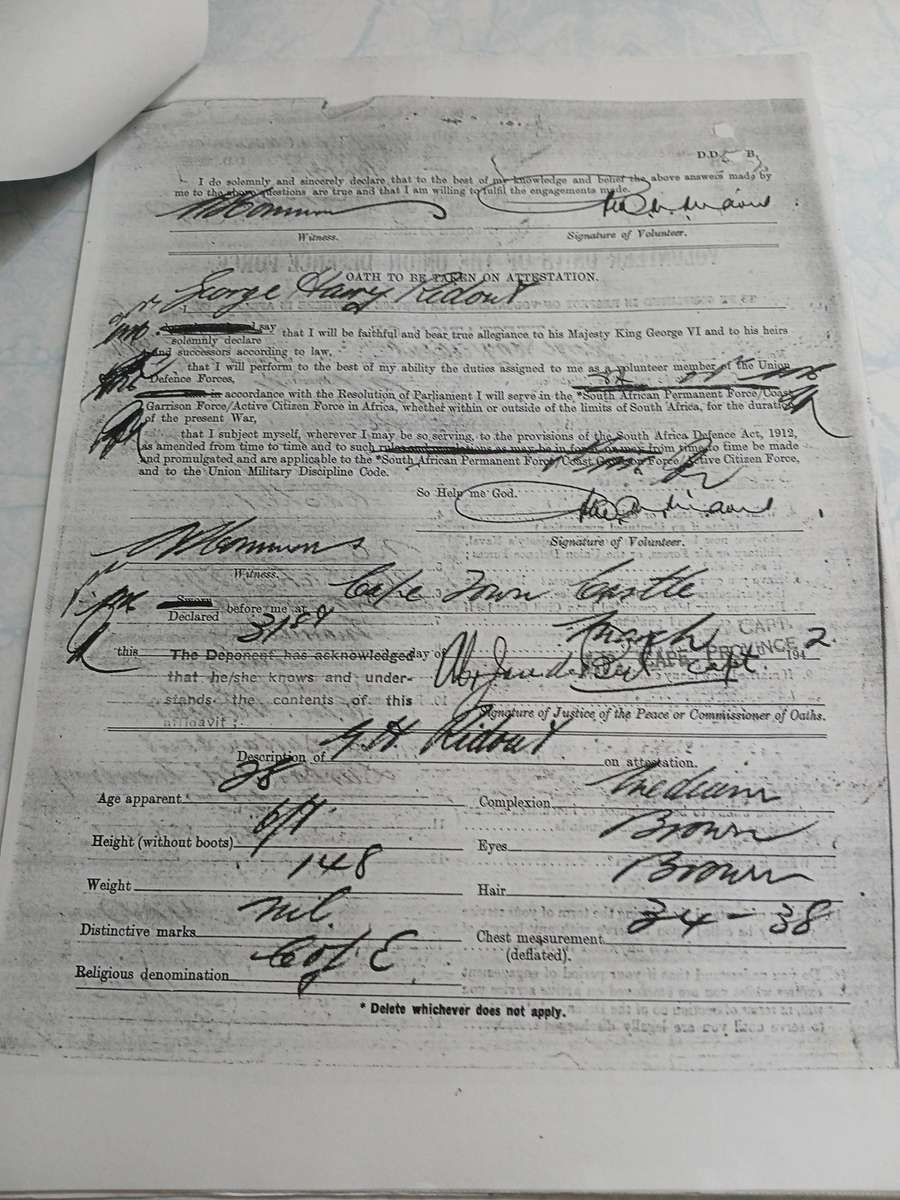 D.D.
I do solemnly and sincerely declare that to the best of my knowledge and belief the above answers made by
me to the above questions are true and that I am willing to fulfil the engagements made.
Witness. Signature of Volunteer.
OATH TO BE TAKEN ON ATTESTATION.
I, George Harry Ridout
say
solemnly declare that I will be faithful and bear true allegiance to his Majesty King George VI and to his heirs
and successors according to law,
that I will perform to the best of my ability the duties assigned to me as a volunteer member of the Union
Defence Forces,
in accordance with the Resolution of Parliament I will serve in the *South African Permanent Force/Coast
Garrison Force/Active Citizen Force in Africa, whether within or outside of the limits of South Africa, for the duration
of the present War,
that I subject myself, wherever I may be so serving, to the provisions of the South Africa Defence Act, 1912,
as amended from time to time and to such rules and regulations as may be in force from time to time be made
and promulgated and are applicable to the *South African Permanent Force/Coast Garrison Force/Active Citizen Force,
and to the Union Military Discipline Code.
So Help me God.
Signature of Volunteer.
Witness.
Sworn
Declared before me at Cape Town Castle
this 31st day of March 1942
The Deponent has acknowledged
that he/she knows and under-
stands the contents of this
affidavit
CAPE PROVINCE
Capt.
Signature of Justice of the Peace or Commissioner of Oaths.
Description of G.H. Ridout on attestation.
Age apparent 28 Complexion Medium
Height (without boots) 6 ft Eyes Brown
Weight 148 Hair Brown
Distinctive marks nil Chest measurement 34 - 38
(deflated).
Religious denomination C of E
* Delete whichever does not apply.